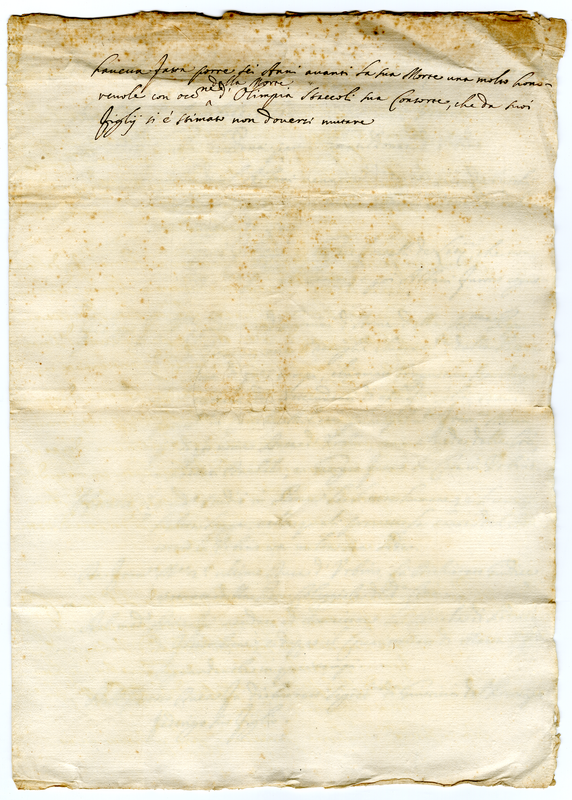 haueua fatta porre sei Anni auanti la sua Morte una molto hono=
reuole con occ.ne della Morte d'Olimpia Staccoli sua Consorte, che da suoi
figlij si é stimato non douersi mutare